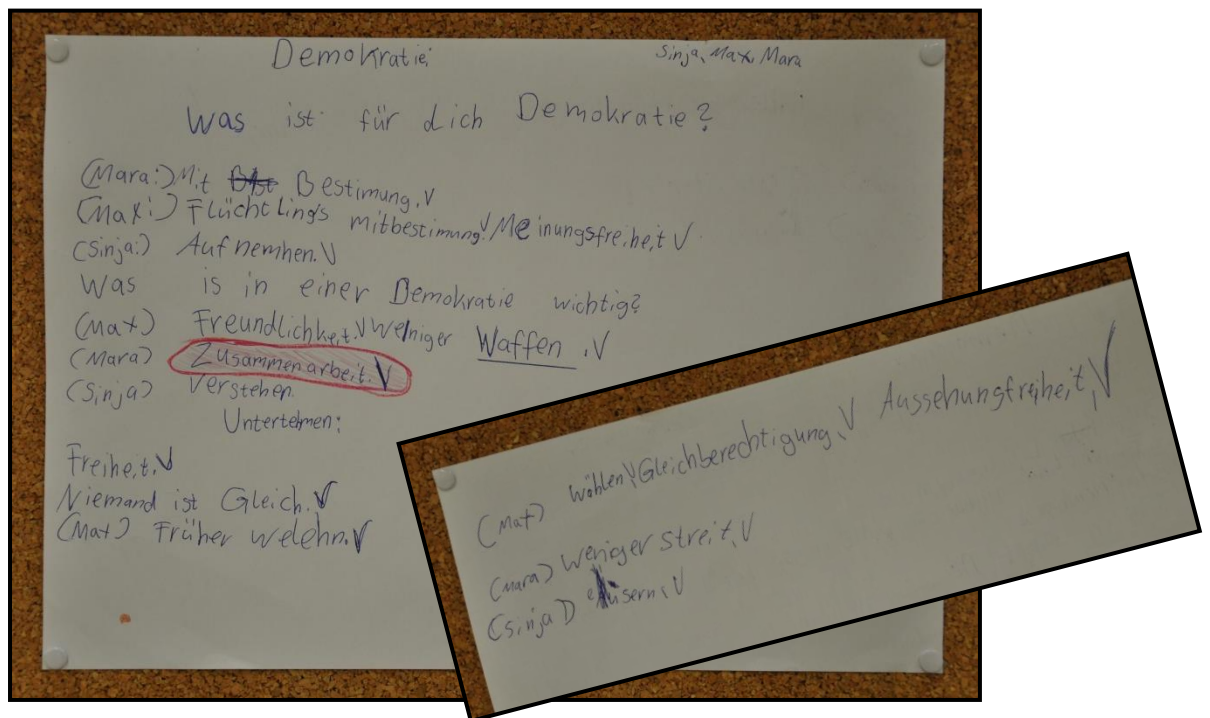 Demokratie:
Sinja, Max, Mara
Was ist für dich Demokratie?
(Mara:) Mit Bestimung. V
(Max:) Flüchtlings mitbestimung! V Meinungsfreiheit V
(Sinja:) Aufnemhen. V
Was is in einer Demokratie wichtig?
(Max) Freundlichkeit. V Weniger Waffen. V
(Mara) Zusammenarbeit. V
(Sinja) Verstehen
Freiheit. V
Niemand ist Gleich. V
(Max) Früher welehn. V
(Max) Wöhlen V Gleichberechtigung, V Aussehungsfreiheit, V
(Mara) Weniger streit, V
(Sinja)